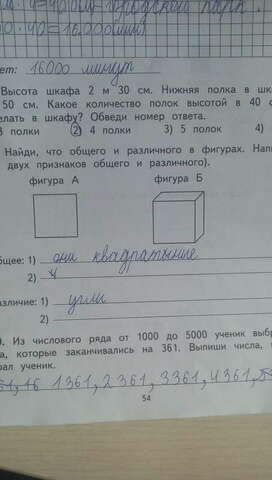 40 = 16000 (мин)
ет: 16000 минут
Высота шкафа 2 м 30 см. Нижняя полка в шк
50 см. Какое количество полок высотой в 40 с
елать в шкафу? Обведи номер ответа.
3 полки 2) 4 полки 3) 5 полок 4)
Найди, что общего и различного в фигурах. Нап
двух признаков общего и различного).
фигура А фигура Б
бщее: 1) они квадратные
2) ч
азличие: 1) углы
2)
Из числового ряда от 1000 до 5000 ученик выбр
а, которые заканчивались на 361. Выпиши числа,
рал ученик.
61, 16 1361, 2361, 3361, 4361,
54